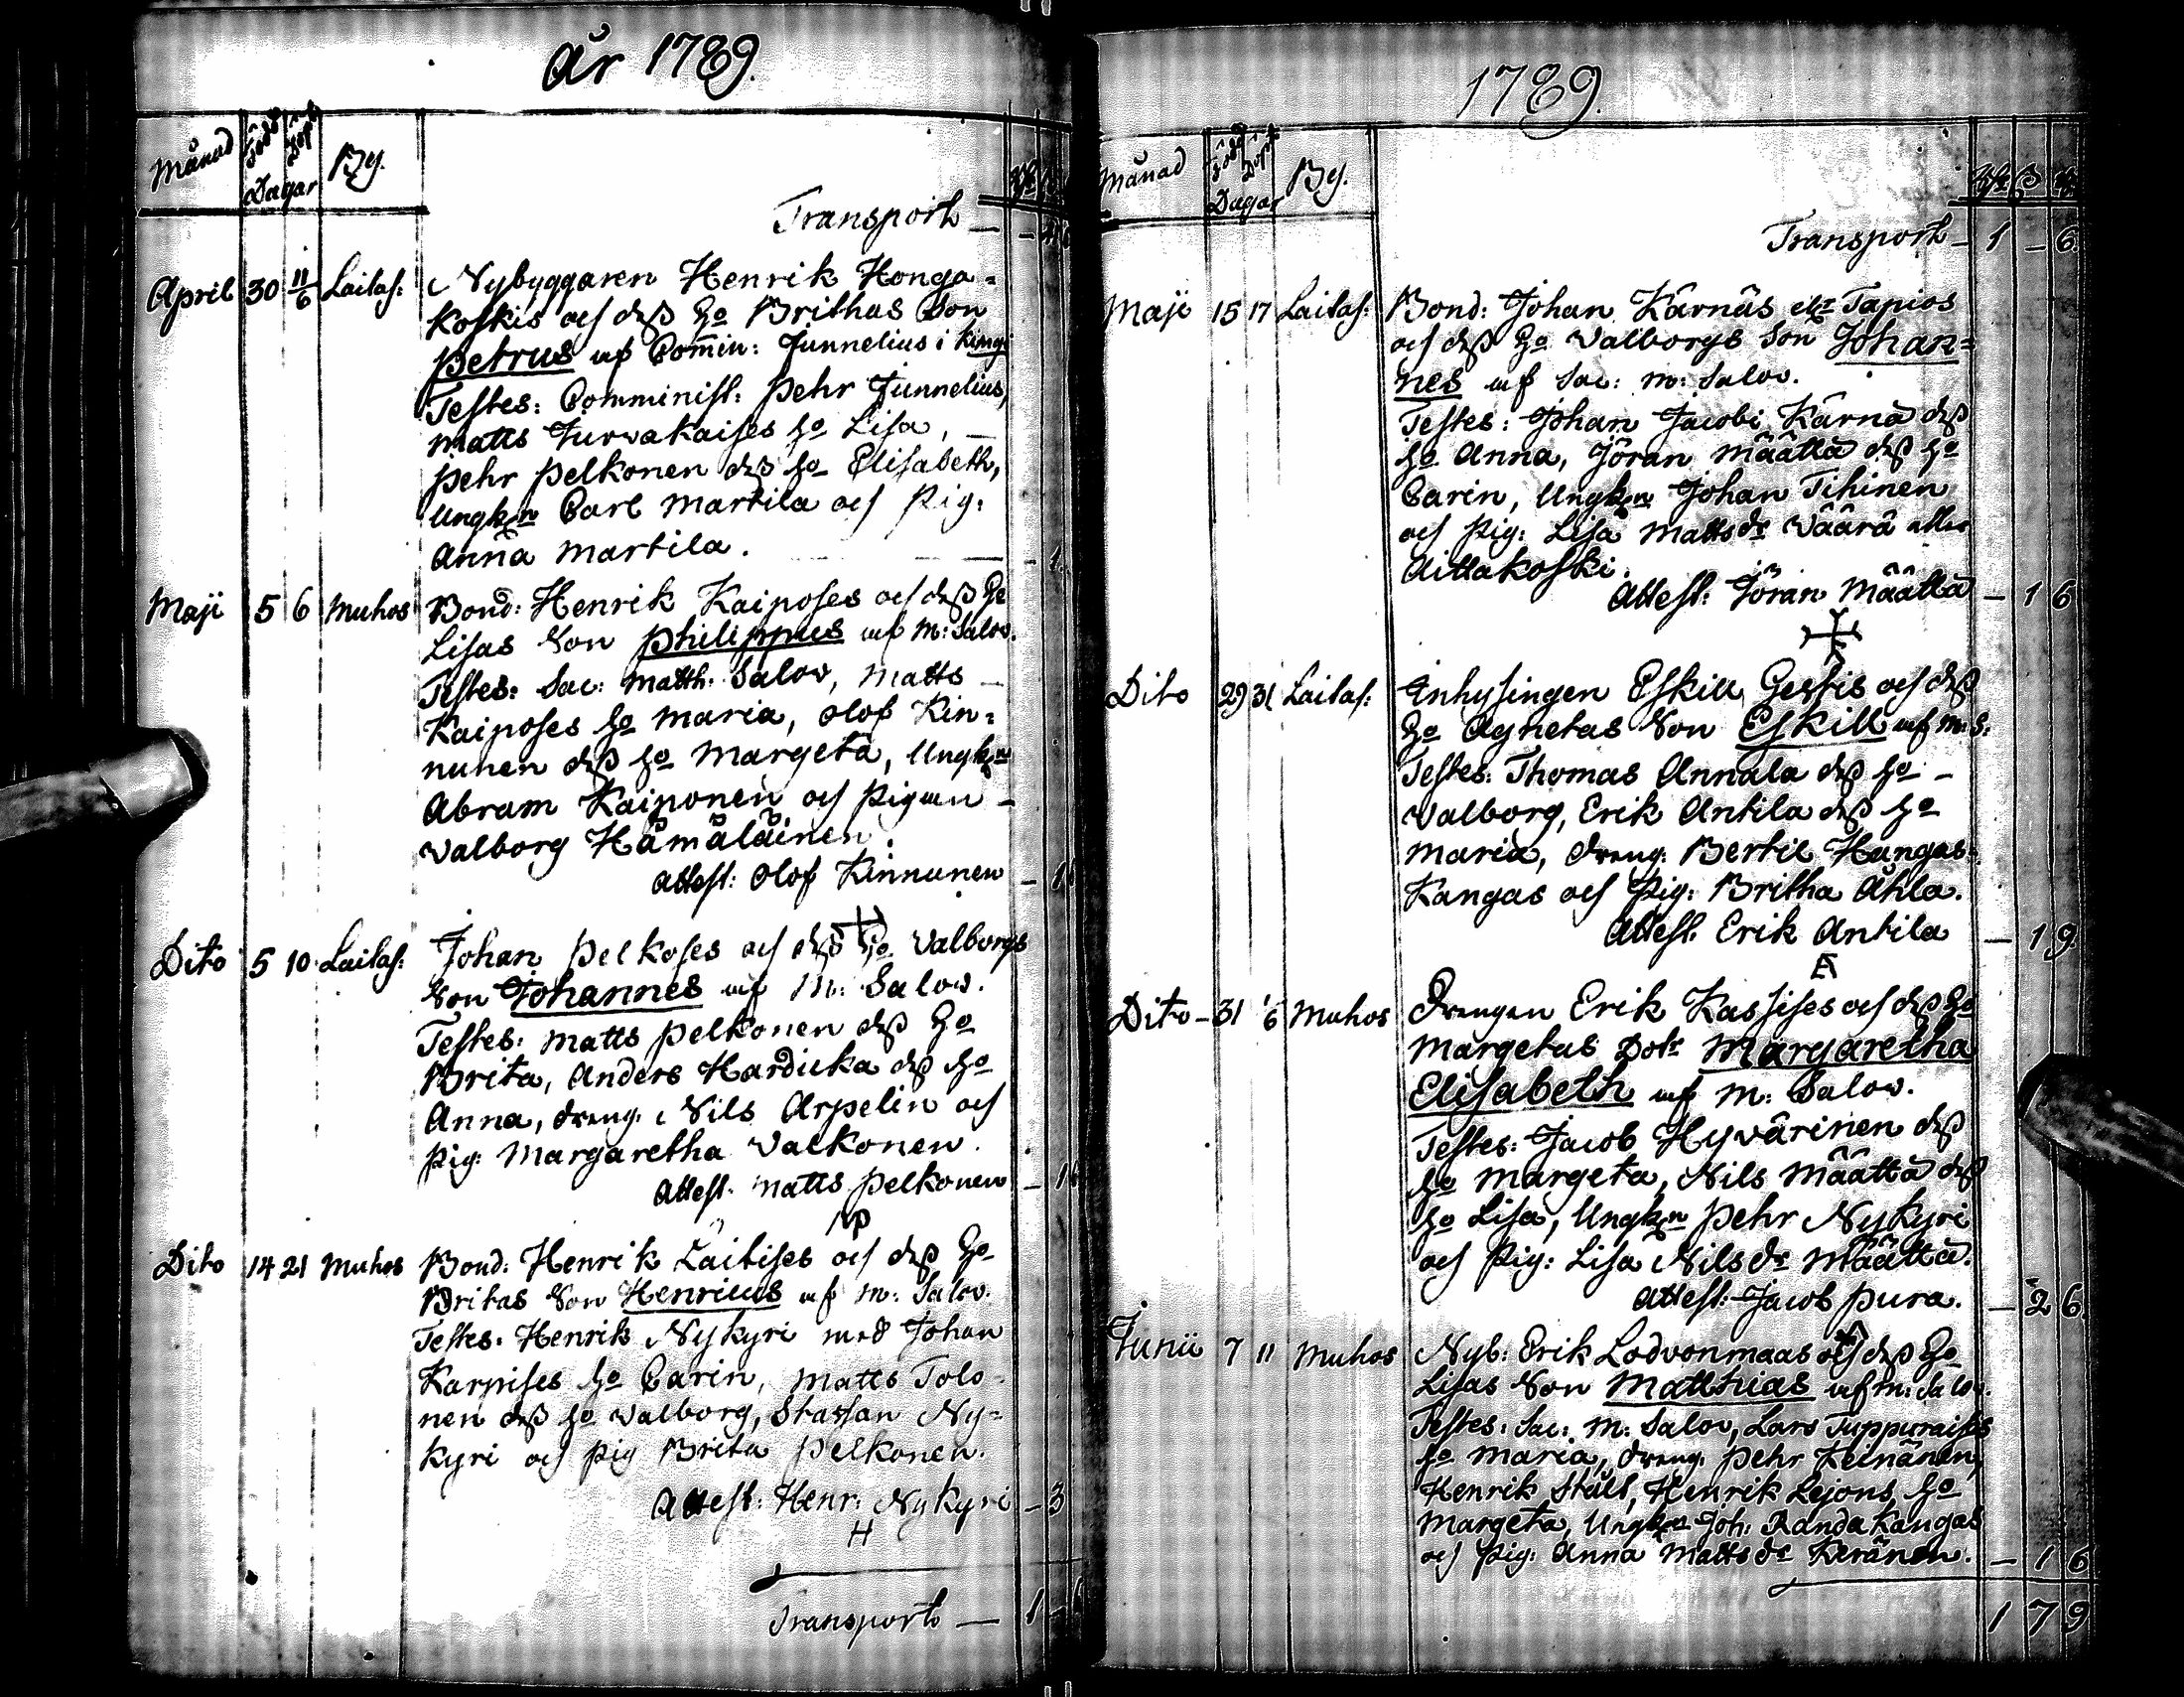 År 1789.
Månad Född Döpt Dagar By.
Transport
April 30 11/6 Laitas: Nybyggaren Henrik Honga=
koskis och dess Ho Brithas Son
Petrus af Com̄in: Junnelius i
Testes: Comminist: Pehr Junnelius,
Matts Turvakaises ho Lisa,
Pehr Pelkonen dess ho Elisabeth,
Ungkn Carl Martila och Pig:
Anna Martila. – 1
Maji 5 6 Muhos Bond: Henrik Kaiposes och dess Ho
Lisas Son Philippus af M: Salov.
Testes: Sac: Matth: Salov, Matts
Kaiposes ho Maria, Olof Kin=
nunen dess ho Margeta, Ungkn
Abram Kaiponen och Pigan
Valborg Hämäläinen.
Attest: Olof Kinnunen – 1
Dito 5 10 Laitas: Johan Pelkoses och dess Ho Valborgs
Son Johannes af M: Salov.
Testes: Matts Pelkonen dess Ho
Brita, Anders Hardicka dess ho
Anna, dreng: Nils Arpelin och
Pig: Margaretha Valkonen.
Attest: Matts Pelkonen – 1
Dito 14 21 Muhos Bond: Henrik Laitises och dess Ho
Britas Son Henricus af M: Salov.
Testes: Henrik Nykyri med Johan
Karpises ho Carin, Matts Tolo-
nen dess ho Valborg, Staffan Ny=
kyri och Pig Brita Pelkonen.
Attest: Henr: Nykyri – 3
H
Transport — 1 –
1789.
Månad Född Döpt Dagar By.
Transport – 1 – 6
Maji 15 17 Laitas: Bond: Johan Kärnäs elr Tapios
och dess Ho Valborgs Son Johan=
nes af Sac: M: Salov.
Testes: Johan Jacobi Kärnä dess
ho Anna, Jöran Määttä dess ho
Carin, Ungkn Johan Tihinen
och Pig: Lisa Mattsdr Väärä eller
Aittakoski.
Attest: Jöran Määttä – 1 6
Dito 29 31 Laitas: Inhysingen Eskill Gestis och dess
Ho Agnetas Son Eskill af M: S:
Testes: Thomas Annala dess ho –
Valborg, Erik Antila dess ho
Maria, dreng: Bertil Hangas=
Kangas och Pig: Britha Ahla.
Attest. Erik Antila – 1 9
A
Dito – 31 6 Muhos Drengen Erik Kassises och dess Ho
Margetas Dotr Margaretha
Elisabeth af M: Salov.
Testes: Jacob Hyvärinen dess
ho Margeta, Nils Määttä dess
ho Lisa, Ungkn Pehr Nykyri
och Pig: Lisa Nilsdr Määttä.
Attest: Jacob Pura. – 2 6
Junii 7 11 Muhos Nyb: Erik Lodvonmaas och dess Ho
Lisas Son Matthias af M: Salov.
Testes: Sac: M: Salov, Lars Tuppuraises
ho Maria, dreng: Pehr Keinänen,
Henrik Stålt, Henrik Lejons ho
Margeta, Ungkn Joh: Randakangas
och Pig: Anna Mattsdr Keränen. – 1 6
1 7 9